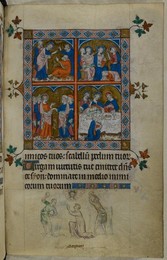 micos tuos: scabellū pedum tuoꝝ
Virgam uirtutis tue emittet dn̄s
ex syon: dominare in medio inimi
corum tuorum